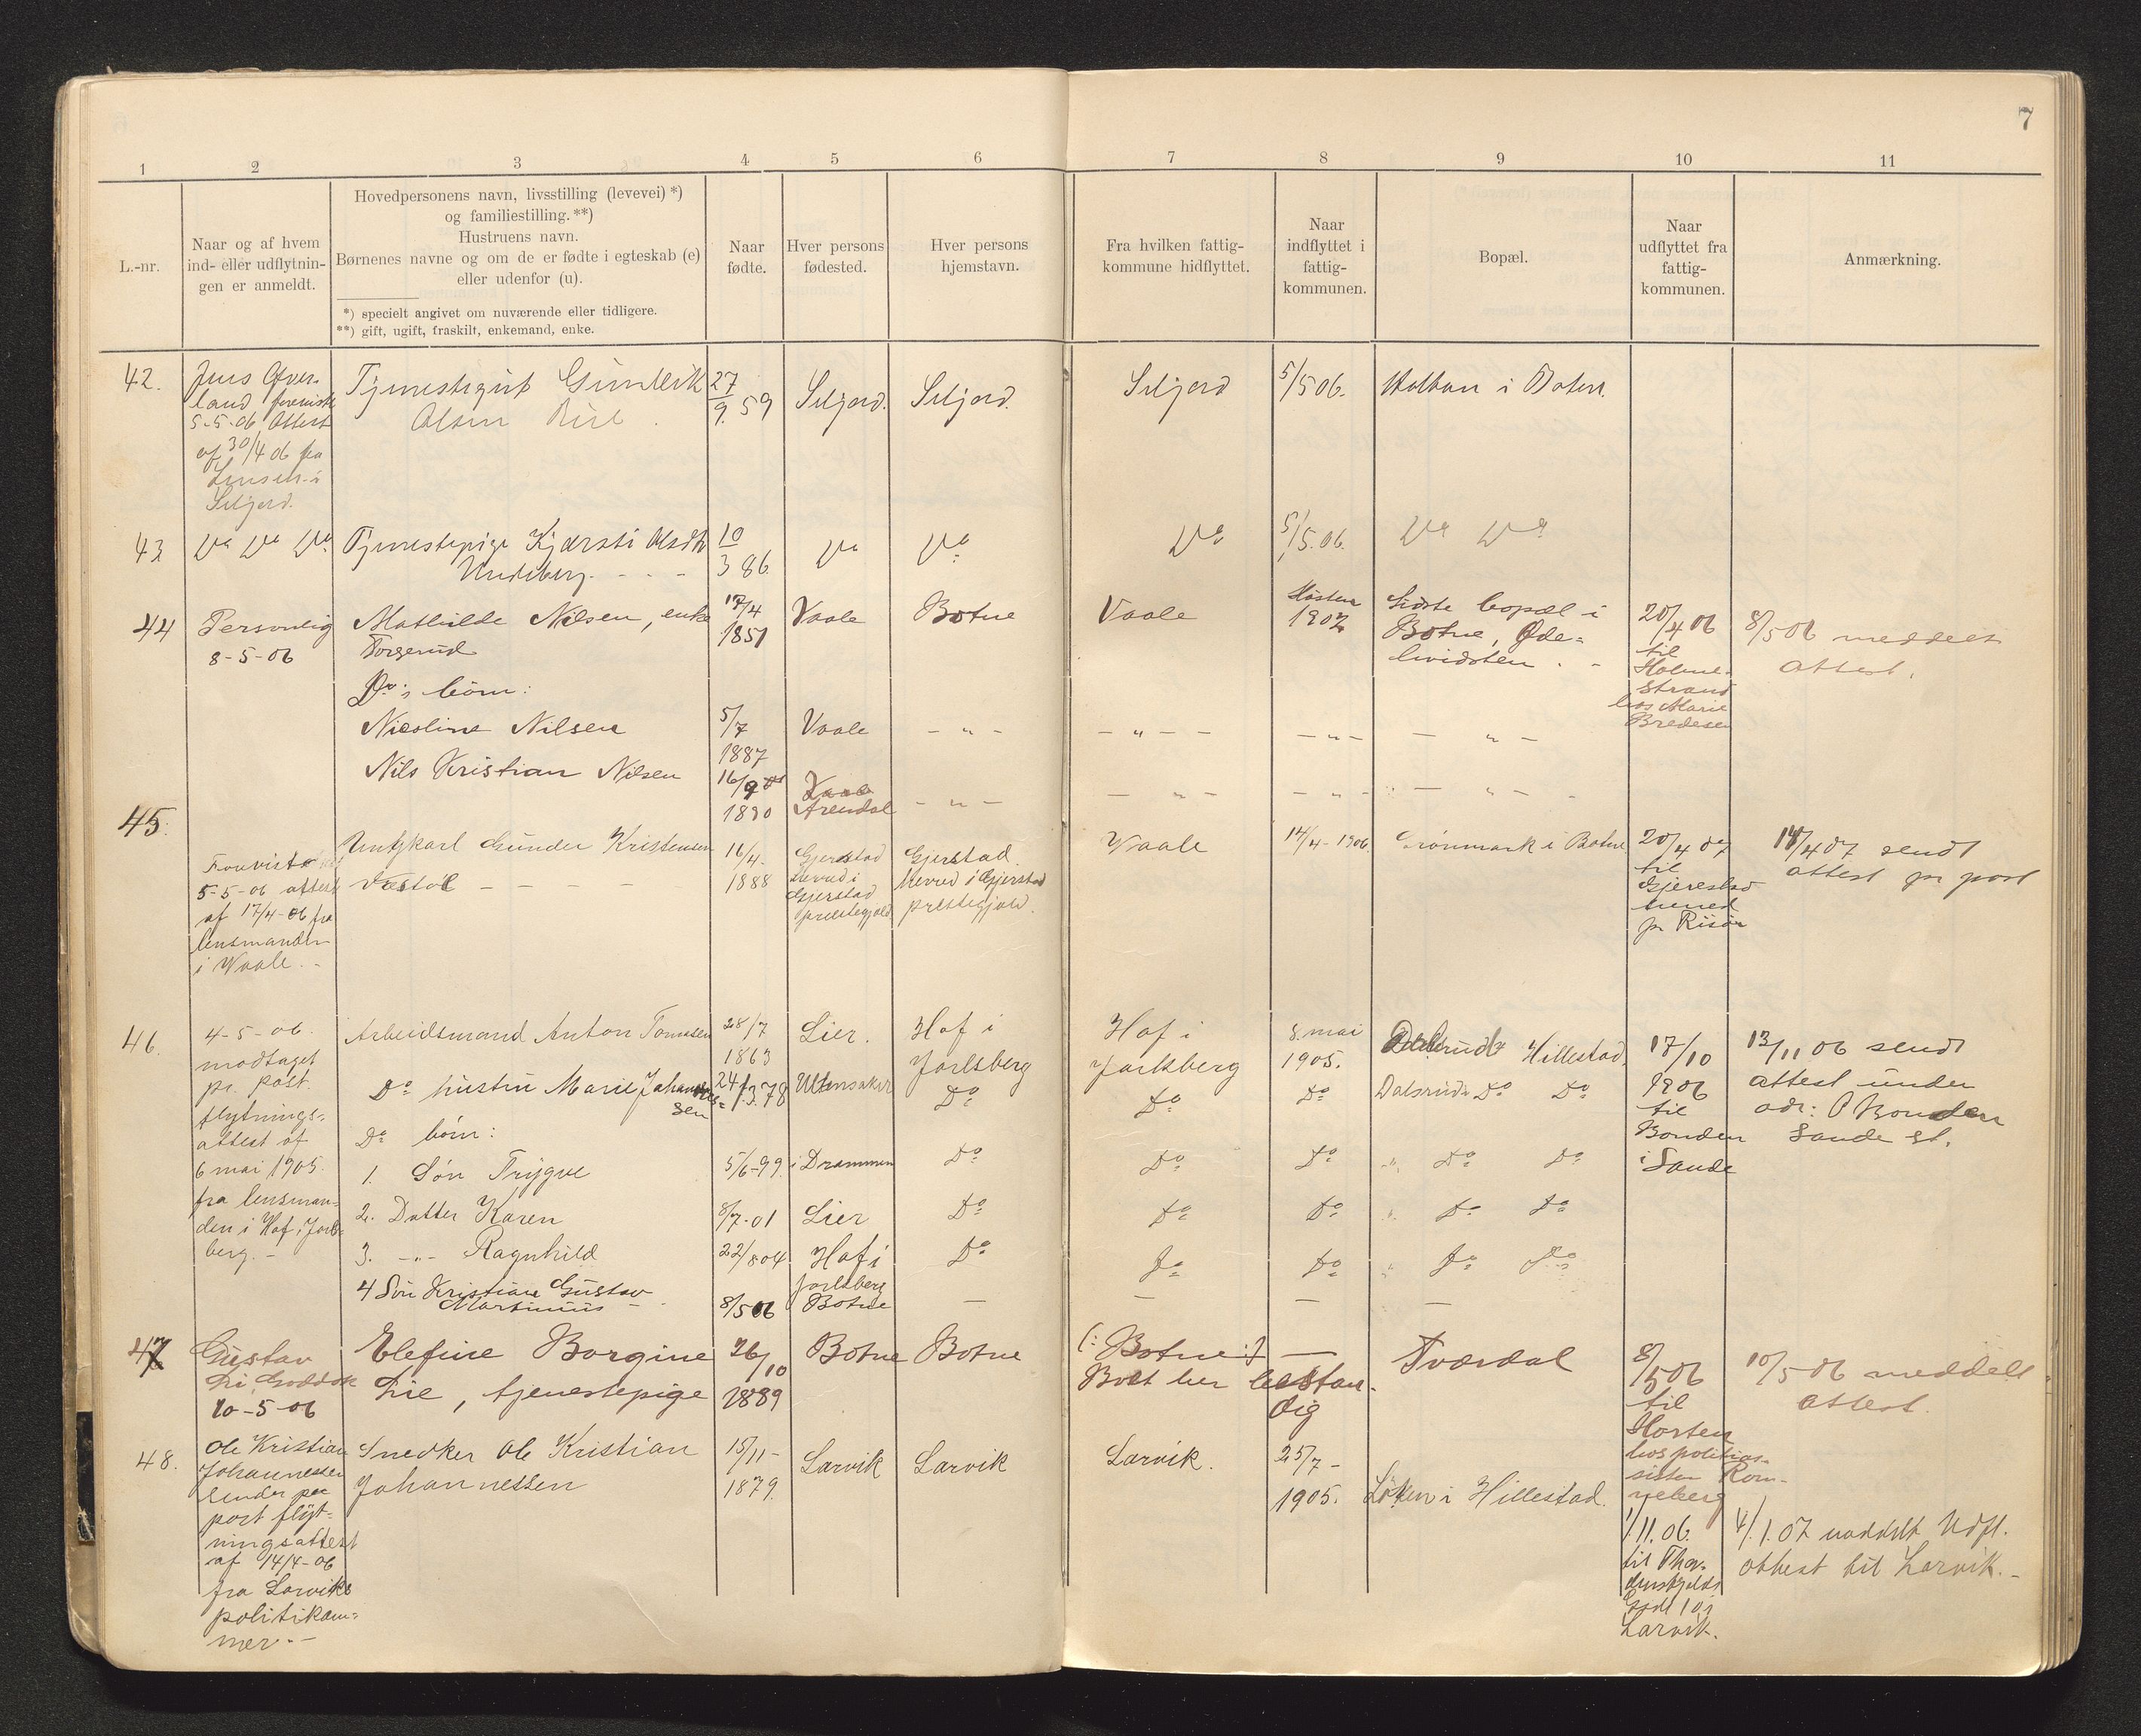 7
1 2 3 4 5 6 7 8 9 10 11
L.-nr.
Naar og af hvem
ind- eller udflytnin-
gen er anmeldt.
Hovedpersonens navn, livsstilling (levevei) *)
og familiestilling. **)
Hustruens navn.
Børnenes navne og om de er fødte i egteskab (e)
eller udenfor (u).
*) specielt angivet om nuværende eller tidligere.
**) gift, ugift, fraskilt, enkemand, enke.
Naar
fødte.
Hver persons
fødested.
Hver persons
hjemstavn.
Fra hvilken fattig-
kommune hidflyttet.
Naar
indflyttet i
fattig-
kommunen.
Bopæl.
Naar
udflyttet fra
fattig-
kommunen.
Anmærkning.
42.
5-5-06 Attest
af 30/4 06 fra
Seljord.
Tjenestegut
Olsen
27
9. 59
Seljord.
Seljord.
Seljord
5/5 06.
i Botne.
43
Do Do Do
Tjenestepige Kjersti Olsdtr
10
3 86
Do
Do
Do
5/5. 06.
Do Do
44
Personlig
8-5-06
Mathilde Nilsen, enke
Torgerud
Do's börn:
Nicoline Nilsen
Nils Kristian Nilsen
17/4
1851
5/7
1887
16/9
1890
Vaale
Vaale
Vaale
Arendal
Botne
- " -
- " -
Vaale
- " - -
- " -
Høsten
1902
- " -
- " -
Sidste bopæl i
Botne, Øde-
- " -
- " -
20/4 06
til
Holme-
strand
hos Marie
Bredesen
8/5 06 meddelt
attest.
45.
Forevist
5-5-06 attest
af 17/4-06 fra
lensmanden
i Vaale. -
Ungkarl Gunder Kristensen
Væstøl - - - -
16/4-
1888
Gjerstad
herred i
Gjerstad
prestegjeld
Gjerstad.
herred i Gjerstad
prestegjeld.
Vaale
14/4-1906.
Grönmark i Botne
20/4 07
til
Gjerestad
herred
pr Risør
14/4 07 sendt
attest pr post
46.
4-5-06.
modtaget
pr. post.
flytnings-
attest af
6 mai 1905.
fra lensman-
den i Hof, Jarls-
berg. -
Arbeidsmand Anton Tomasen
Do hustru Marie Johannes-
sen
Do börn:
1. Sön Trygve
2. Datter Karen
3. -"- Ragnhild
4 Sön Kristian Gustav
Martinius -
28/7
1863
24/3. 78
5/6-99.
8/7-01
22/8 04
8/5 06
Lier.
Ullensaker
i Drammen
Lier
Hof i
Jarlsberg
Botne
Hof i
Jarlsberg
Do
Do
Do
Do
-
Hof i
Jarlsberg
Do
Do
Do
Do
-
8. mai
1905.
Do
Do
Do
Do
-
Dalsrud Hillestad.
Dalsrud Do Do
" Do Do
" Do Do
" Do Do
-
17/10
1906
til
Bonden
i Sande
13/11 06 sendt
attest under
adr: P Bonden
Sande st.
47
Gustav
10-5-06
Elefine Borgine
Lie, tjenestepige
26/10
1889
Botne
Botne
(: Botne :) -
Boet her bestan-
dig
Tværdal
8/5 06
til
Horten
hos politias-
sisten Rom-
neberg
10/5 06 meddelt
attest.
48.
Ole Kristian
Johannessen
sender per
post flyt-
ningsattest
af 14/4-06
fra Larviks
politikam-
mer. -
Snedker Ole Kristian
Johannessen
15/11-
1879.
Larvik
Larvik
Larvik.
25/7-
1905.
Löken i Hillestad.
1/11. 06.
til
Larvik.
4/1. 07 meddelt Udfl.
attest til Larvik. -